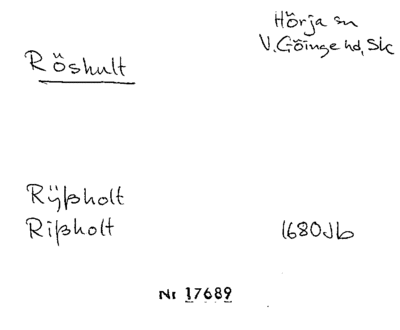 Hörja sn
V. Göinge hd, Sk
Röshult
Rÿßholt
Rißholt 1680 Jb
Nr 17689